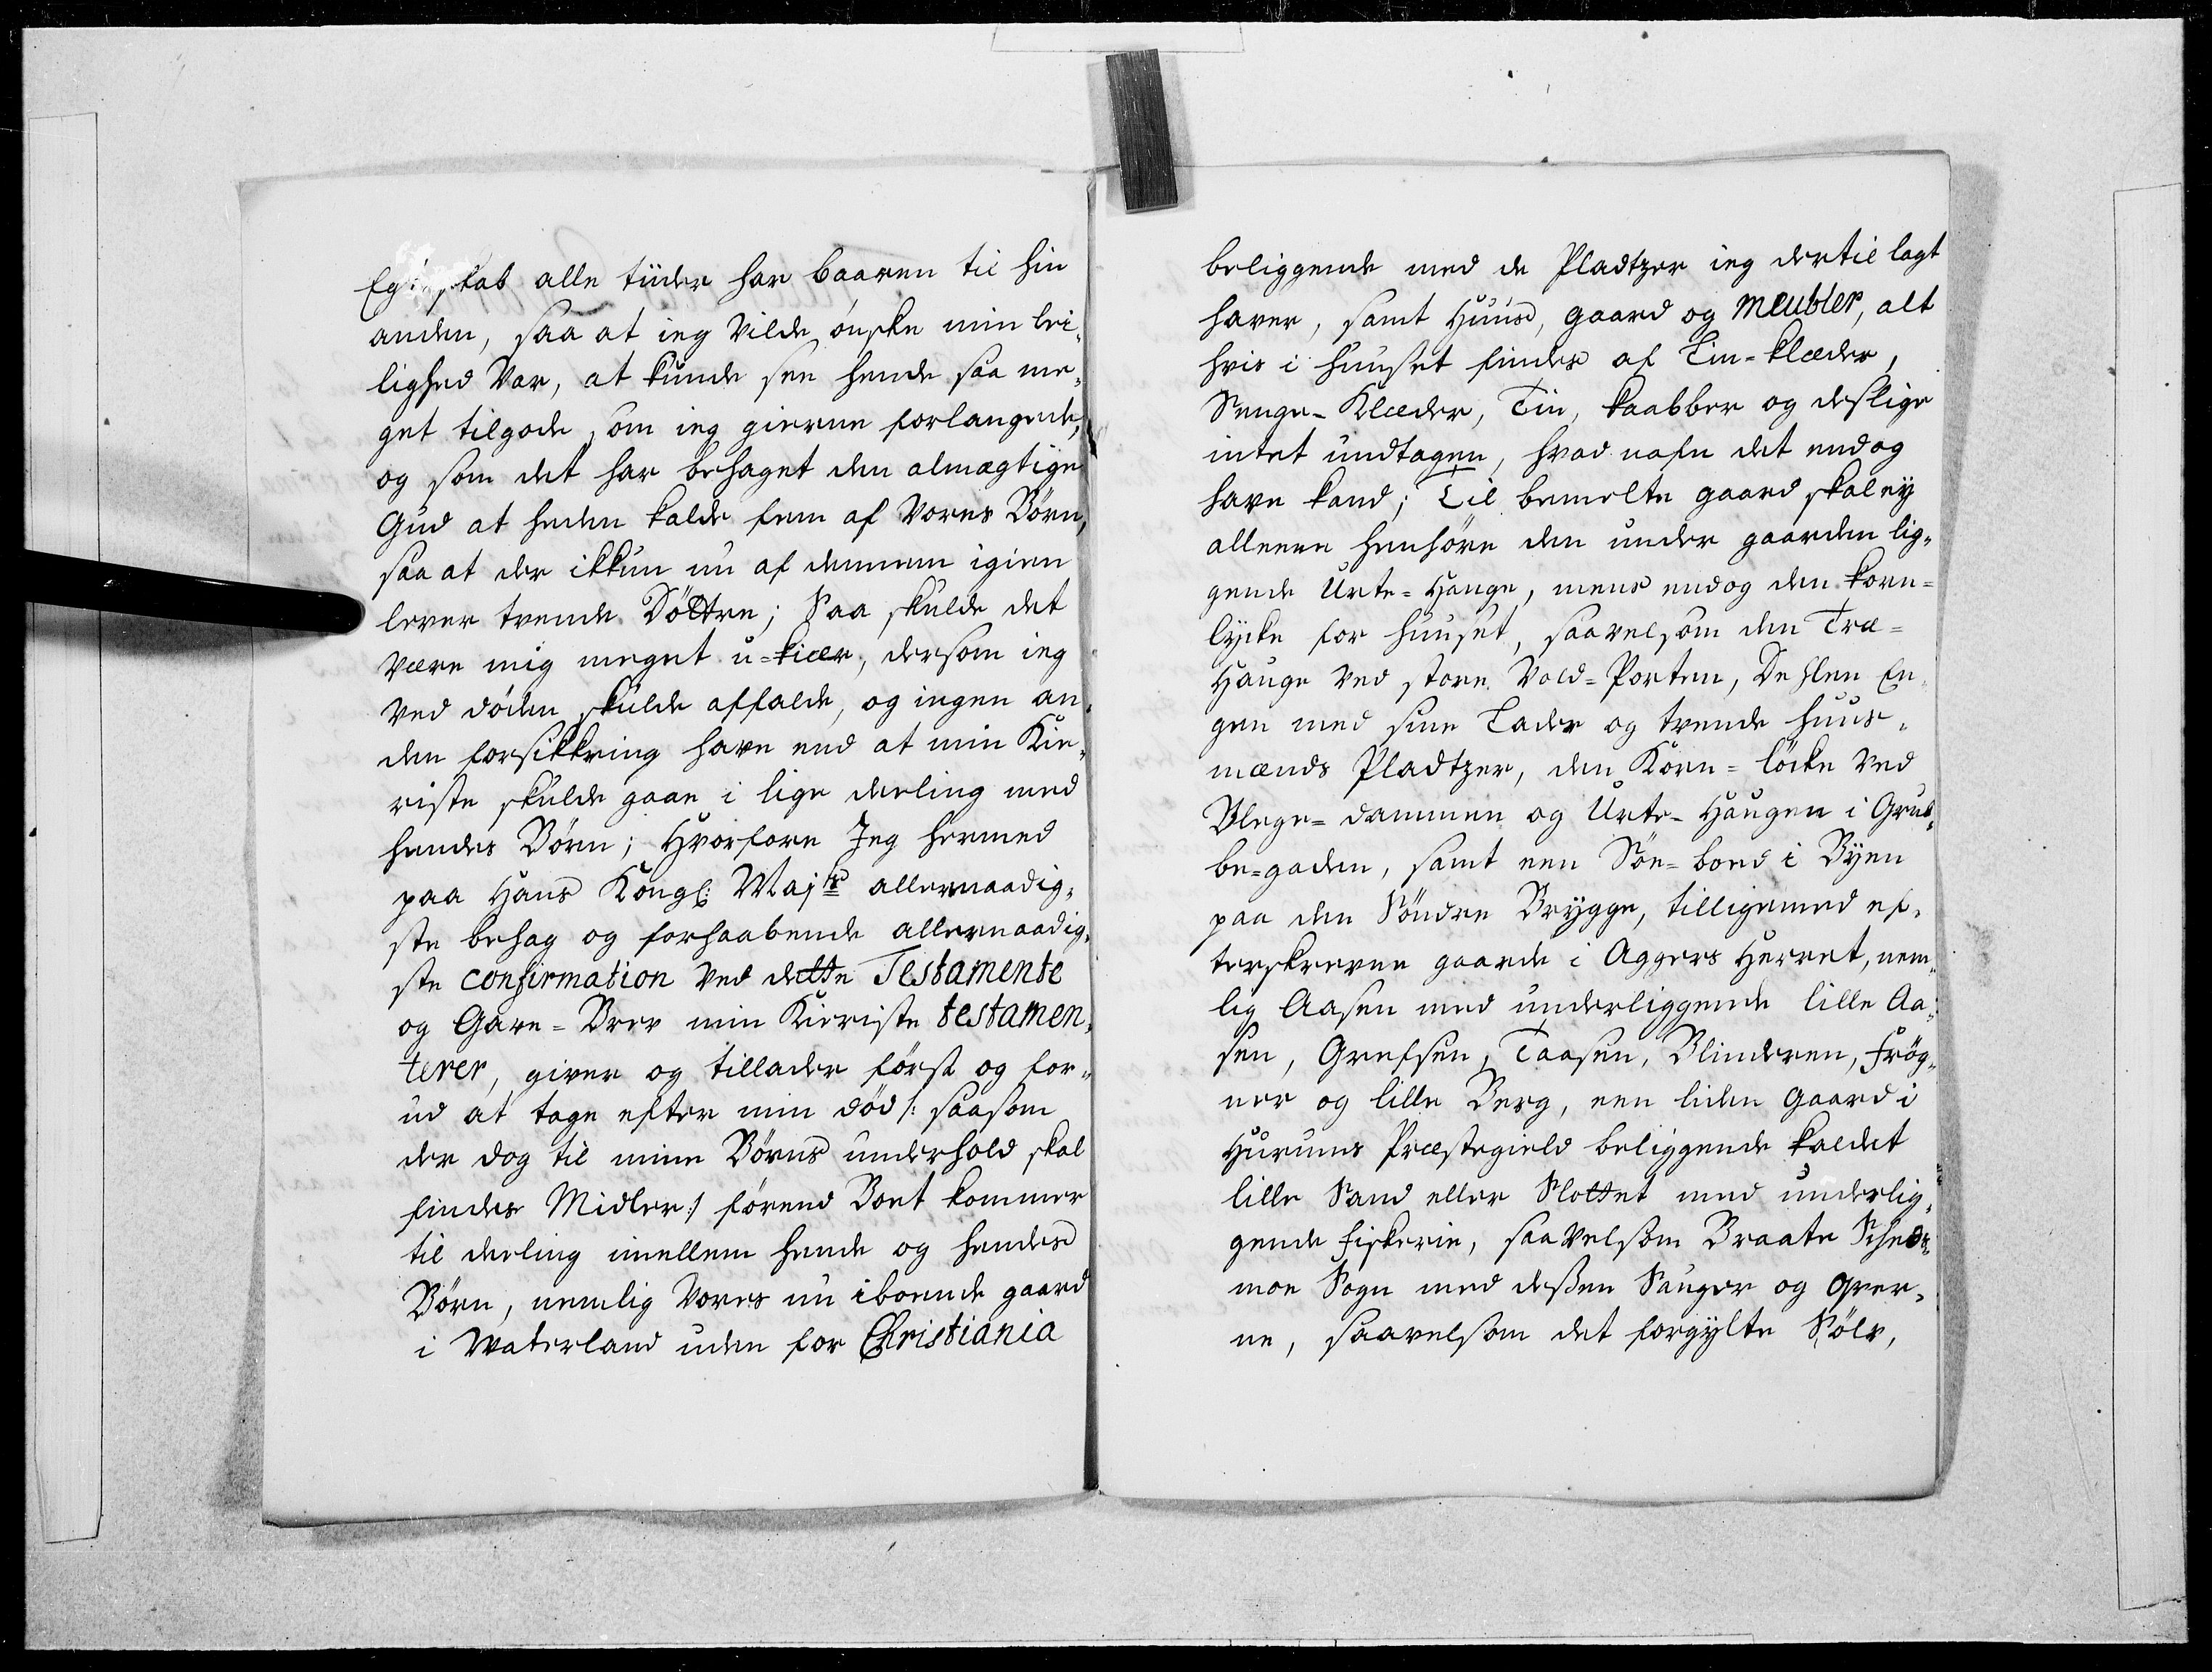 Egteskab alle tiider har baaren til hin
anden, saa at ieg vilde ønske min lei,
lighed var, at kunde see hende saa me,
get tilgode, som ieg gierne forlangede,
og som det har behaget den almægtige
Gud at heden kalde fem af vores Børn,
saa at der ikkun nu af dennem igien
lever trende Döttre; Saa skulde det
være mig meget u=kiær, dersom ieg
ved döden skulde affalde, og ingen an,
den forsikkring have end at min Kie,
riste skulde gaae i lige deeling med
hendes Börn; Hvorfore Jeg hermed
paa Hans Kongl: Majts allernaadig,
ste behag og forhaabende allernaadig,
ste confirmation ved dette Testamente
og Gave=Brev min Kieriste testamen,
terer, giver og tillader først og for,,
ud at tage efter min död /: saasom
der dog til mine Börns underhold skal
findes Midler :/ förend Boet kommer
til deeling imellem hende og hendes
Börn, nemlig vores nu iboende gaard
i Waterland uden for Christiania
beliggende med de Pladtzer ieg dertil lagt
haver, samt Huus, gaard og Meubler, alt
hvis i huuset findes af Lin=klæder,
Senge=Klæder, Tin, kaabber og deslige
intet undtagen, hvad nafn det endog
have kand; Til bemelte gaard skal ey
alleene henhöre den under gaarden lig,,
gende Urte=Hauge, mens endog den korn=
lycke for huuset, saavelsom den Træ=
Hauge ved store Vold=Porten, Dehlen En,
gen med sine Lader og trende huus,
mænds Pladtzer, den Korn=löcke ved
Blege=dammen og Urte=Haugen i Grub,
be=gaden, samt een Söe=boed i Byen
paa den Söndre Brygge, tilligemed ef,
terskrevne gaarde i Aggers Herret, nem,,
lig Aasen med underliggende lille Aa,,
sen, Grefsen, Taasen, Blinderen, Frög,,
ner og lille Berg, een liden Gaard i
Hurums Præstegield beliggende kaldet
lille Sand eller Slottet med underlig,
gende Fiskerie, saavelsom Braate Scheds,,
moe Sogn med deßen Sauger og Qver,
ne, saavelsom det forgylte Sölv,